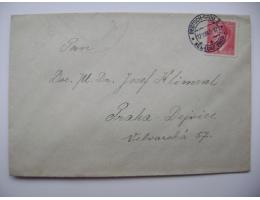 Pan
Doc. M. Dr. Josef Klimeat
Praha-Dejvice
Velvarská 57.